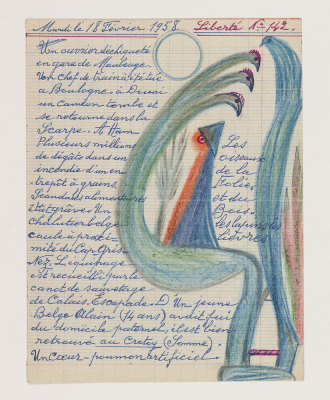 Mardi le 18 Février 1958. Liberté No 142.
Un ouvrier déchiqueté
en gare de Maubeuge.
Un chef de train
à Boulogne. à Douai
un camion tombe et
se retourne dans la
Scarpe. A Ham
Plusieurs millions
de dégâts dans un
incendie d'un en
trepôt à grains,
Scandales alimentaires
état grave. Un
chalutier belge
coule à proxi-
mité du Cap Gris
Nez, L'équipage
est recueilli par le
canot de sauvetage
de Calais. Escapade. D'Un jeune
Belge Alain (14 ans) avait fui
du domicile paternel, il est bien
retrouvé au Crotoy (Somme).
Un Cœur-poumon artificiel.
Les
oiseaux
de la
Folie,
et du
Bois.
les lapins les
lièvres